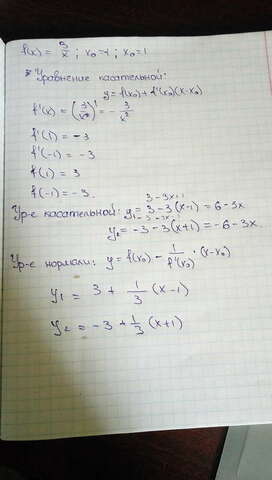 f(x) = 3/x ; x₀=-1 ; x₀=1
* Уравнение касательной:
y=f(x₀)+f'(x₀)(x-x₀)
f'(x) = (3/x)' = - 3/x²
f'(1) = -3
f'(-1) = -3
f(1) = 3
f(-1) = -3.
3-3x+3
Ур-е касательной: y₁= 3-3(x-1) = 6-3x
y₂= -3-3(x+1) = -6-3x
Ур-е нормали: y = f(x₀) - 1/f'(x₀) · (x-x₀)
y₁ = 3 + 1/3 (x-1)
y₂ = -3 + 1/3 (x+1)